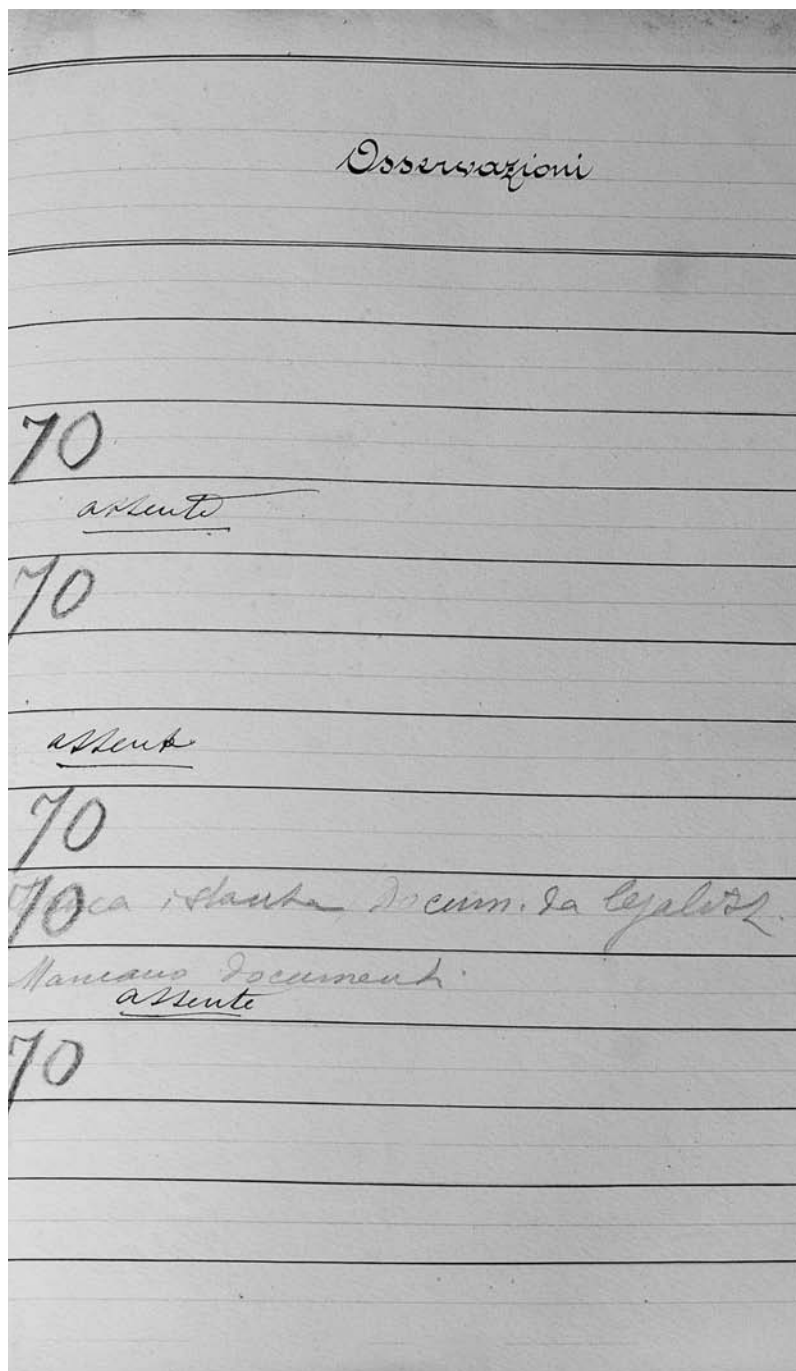 Osservazioni
70
assente
70
assente
70
70
Manca istanza Docum. da legalizz.
Mancano documenti
assente
70